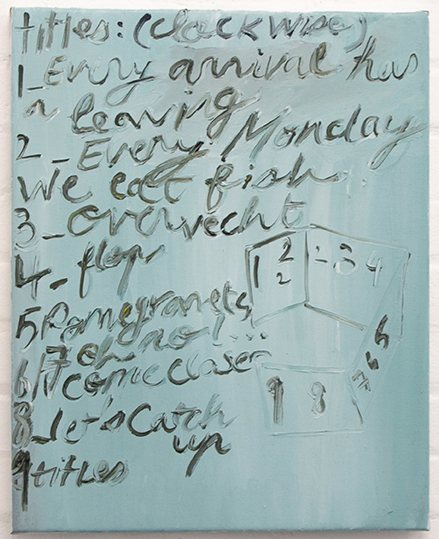 titles: (clockwise)
1_Every arrival has
a leaving
2_Every Monday
we eat fish
3_overvecht
4_flop
5 Pomegranets
oh no!...
6/7 come closer
8_let's catch
up
9 titles
1 2 2 3 4
2
5
6
7
9 8